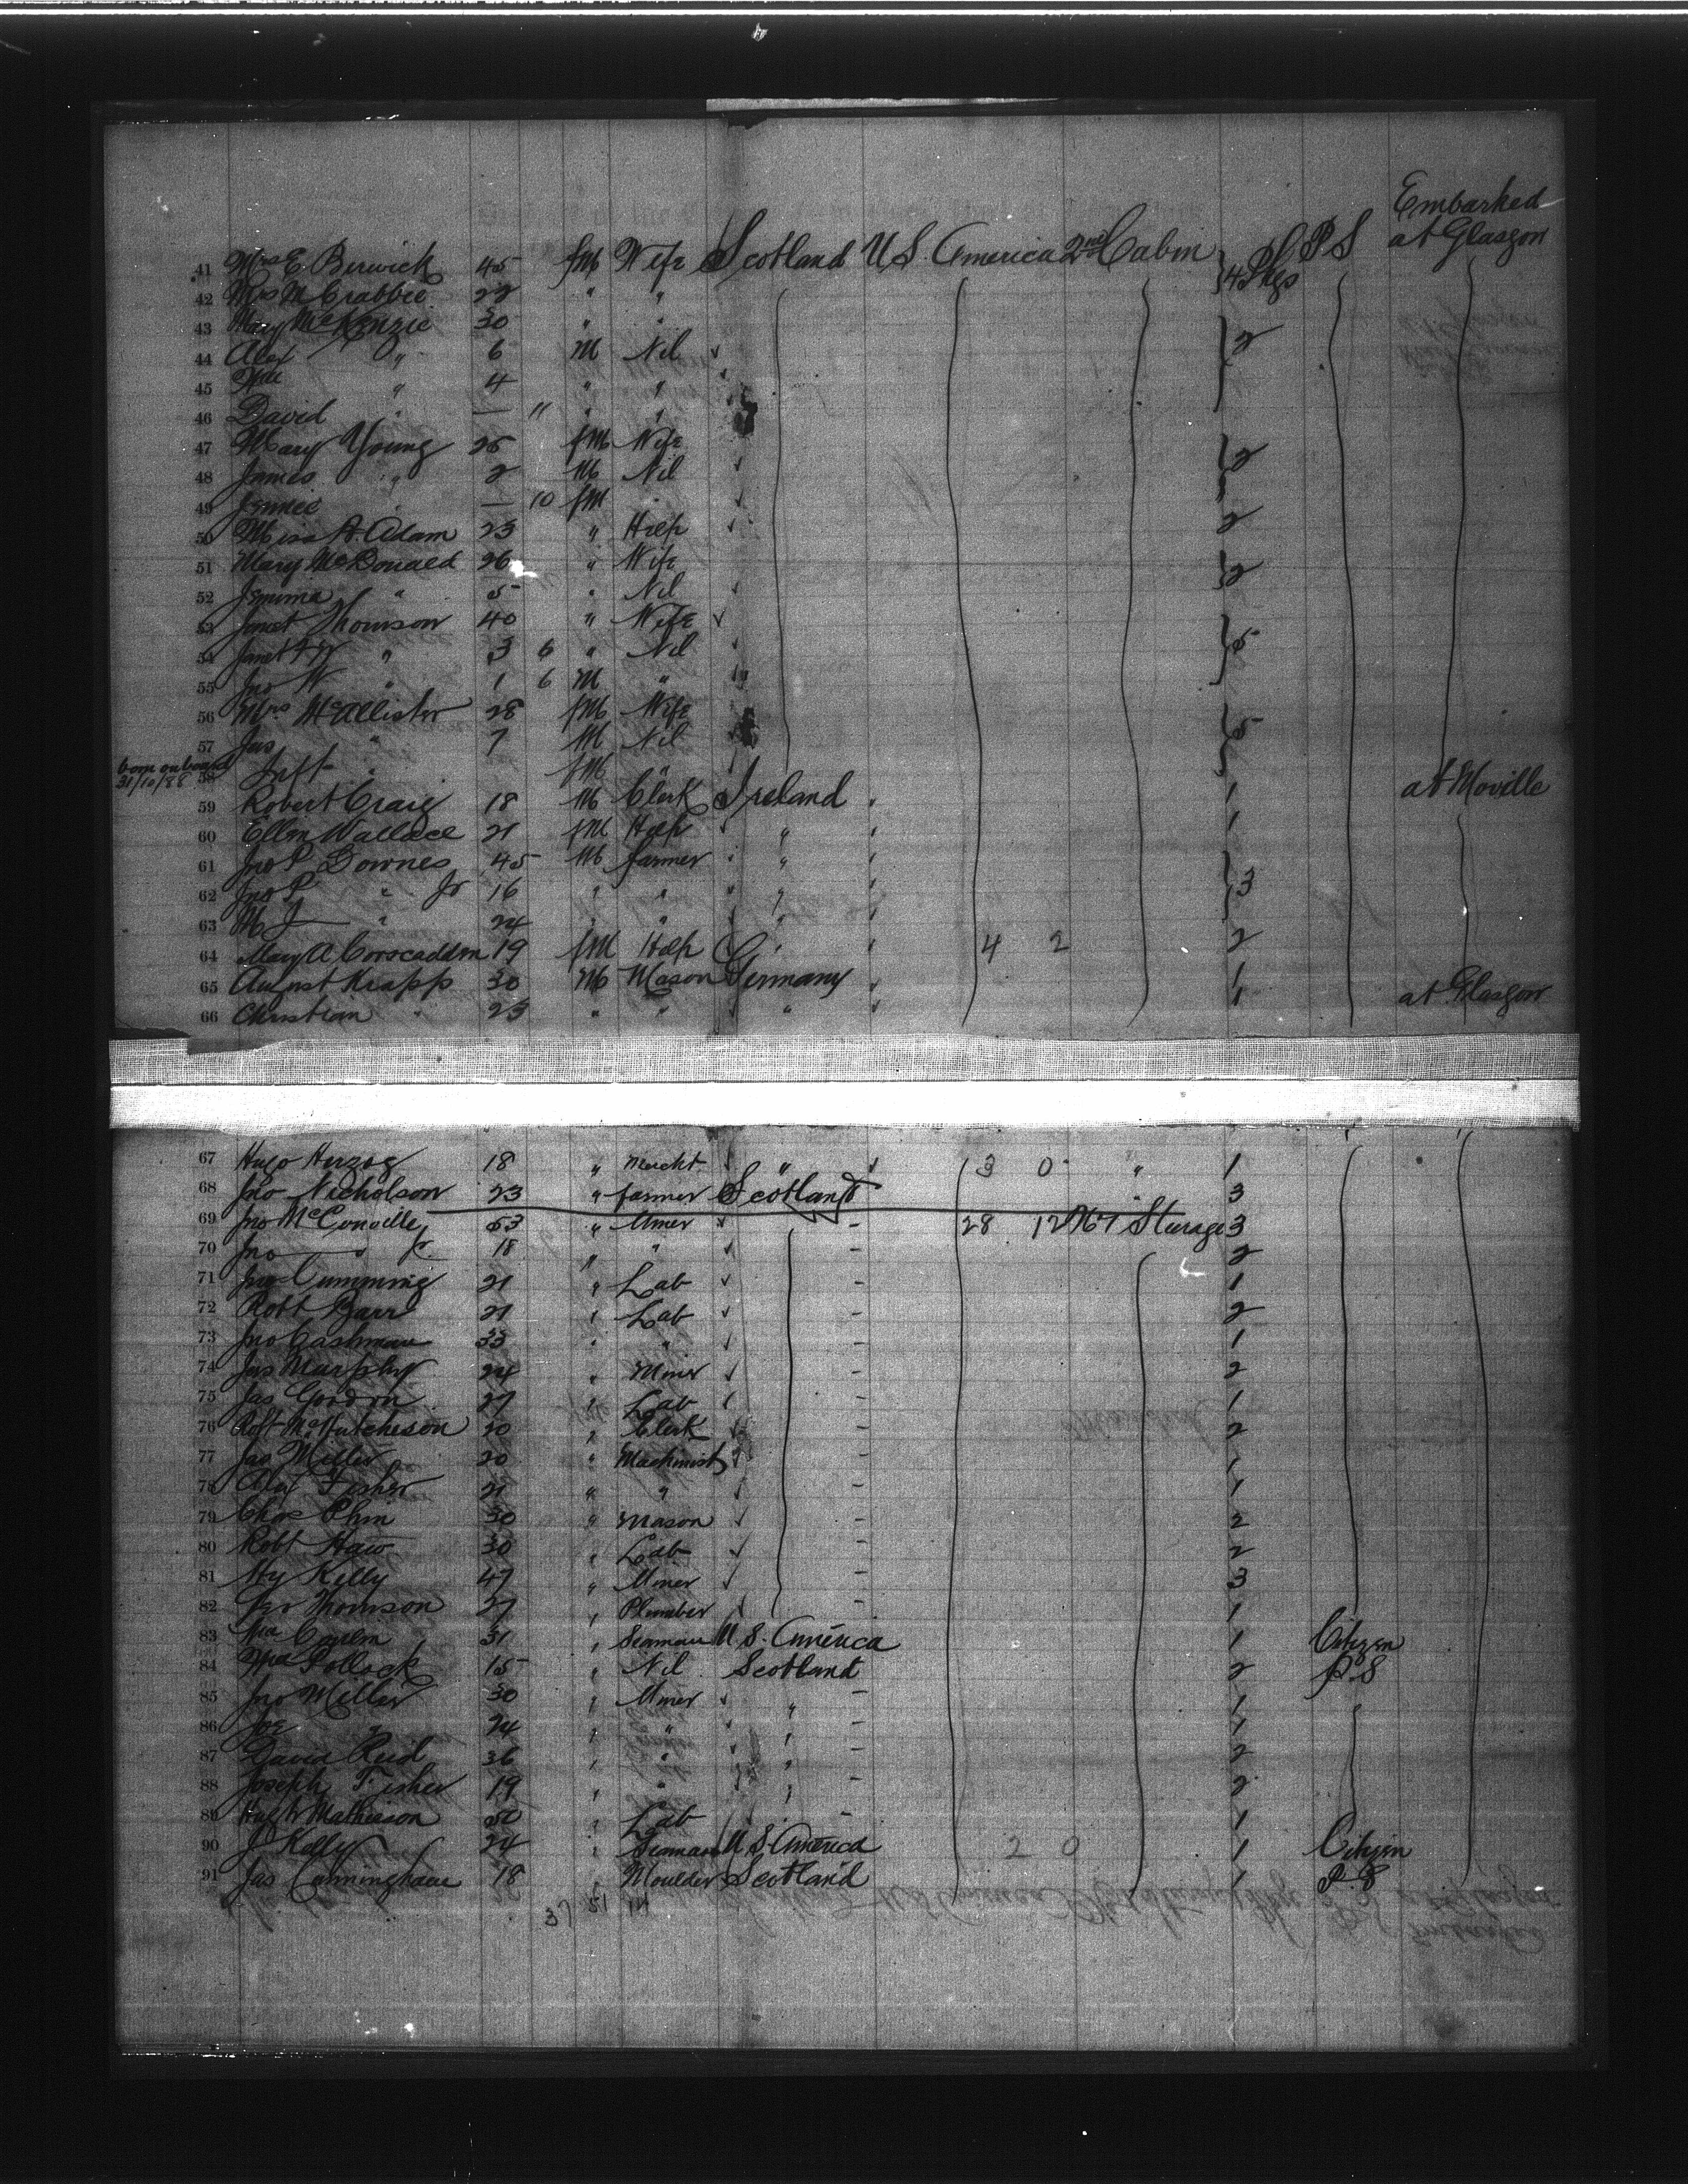 Embarked
41 Mrs E. Berwick 45 fM Wife Scotland U.S. America 2nd Cabin } 4 Pkgs P S at Glasgow
42 Mrs M Crabbie 22 " "
43 Mary McKenzie 30 " "
44 Alex " 6 M Nil 2
45 Wm " 4 " "
46 David " — 11 " "
47 Mary Young 25 fM Wife
48 James " 2 M Nil 2
49 Jennie " — 10 fM "
50 Miss A. Adam 23 " Help 2
51 Mary McDonald 26 " Wife 2
52 Jemima " 5 " Nil
53 Janet Thomson 40 " Wife
54 Janet " 3 6 " Nil 5
55 Jno W " 1 6 M "
56 Mrs McAllister 28 fM Wife 5
57 Jas " 7 M Nil
born onboard
31/10/88 58 Inft " fM "
59 Robert Craig 18 M Clerk Ireland " 1 at Moville
60 Ellen Wallace 21 fM Help " " 1
61 Jno P Downes 45 M farmer " "
62 Jno P " Jr 16 " " " " 3
63 M J " 24 " " " "
64 Mary A Corscadden 19 fM Help " " 4 2 2
65 August Krapp 30 M Mason Germany " 1 at Glasgow
66 Christian " 23 " " " " 1
67 Hugo Herzog 18 " Mercht " 3 0 " 1
68 Jno Nicholson 23 " farmer Scotland 3
69 Jno McConville 53 " Miner - 28 12 Sterage 3
70 Jno " Jr 18 " " - 2
71 Jno Cumming 21 " Lab - 1
72 Robt Barr 21 " Lab - 2
73 Jno Cashman 33 " " - 1
74 Jas Murphy 24 " Miner - 2
75 Jas Gordon 27 " Lab - 1
76 Robt McHutcheson 20 " Clerk - 2
77 Jas Miller 20 " Machinist - 1
78 Alex Fisher 21 " " - 1
79 Chas Phin 30 " Mason - 2
80 Robt Haw 30 " Lab - 2
81 Hy Kelly 47 " Miner - 3
82 Thomson 27 " Plumber - 1
83 Wm 31 " Seaman U S. America 1 Citizen
84 Wm Pollock 15 " Nil Scotland 2 P.S
85 Jno Miller 30 " Miner " - 1
86 Joe " 24 " " " - 1
87 David Reid 36 " " " - 2
88 Joseph Fisher 19 " " " - 2
89 Hugh Mathieson 50 " Lab - 1
90 J Kelly 24 " Seaman U S. America 2 0 1 Citizen
91 Jas Cunningham 18 " Moulder Scotland 1 P.S
37 51 14